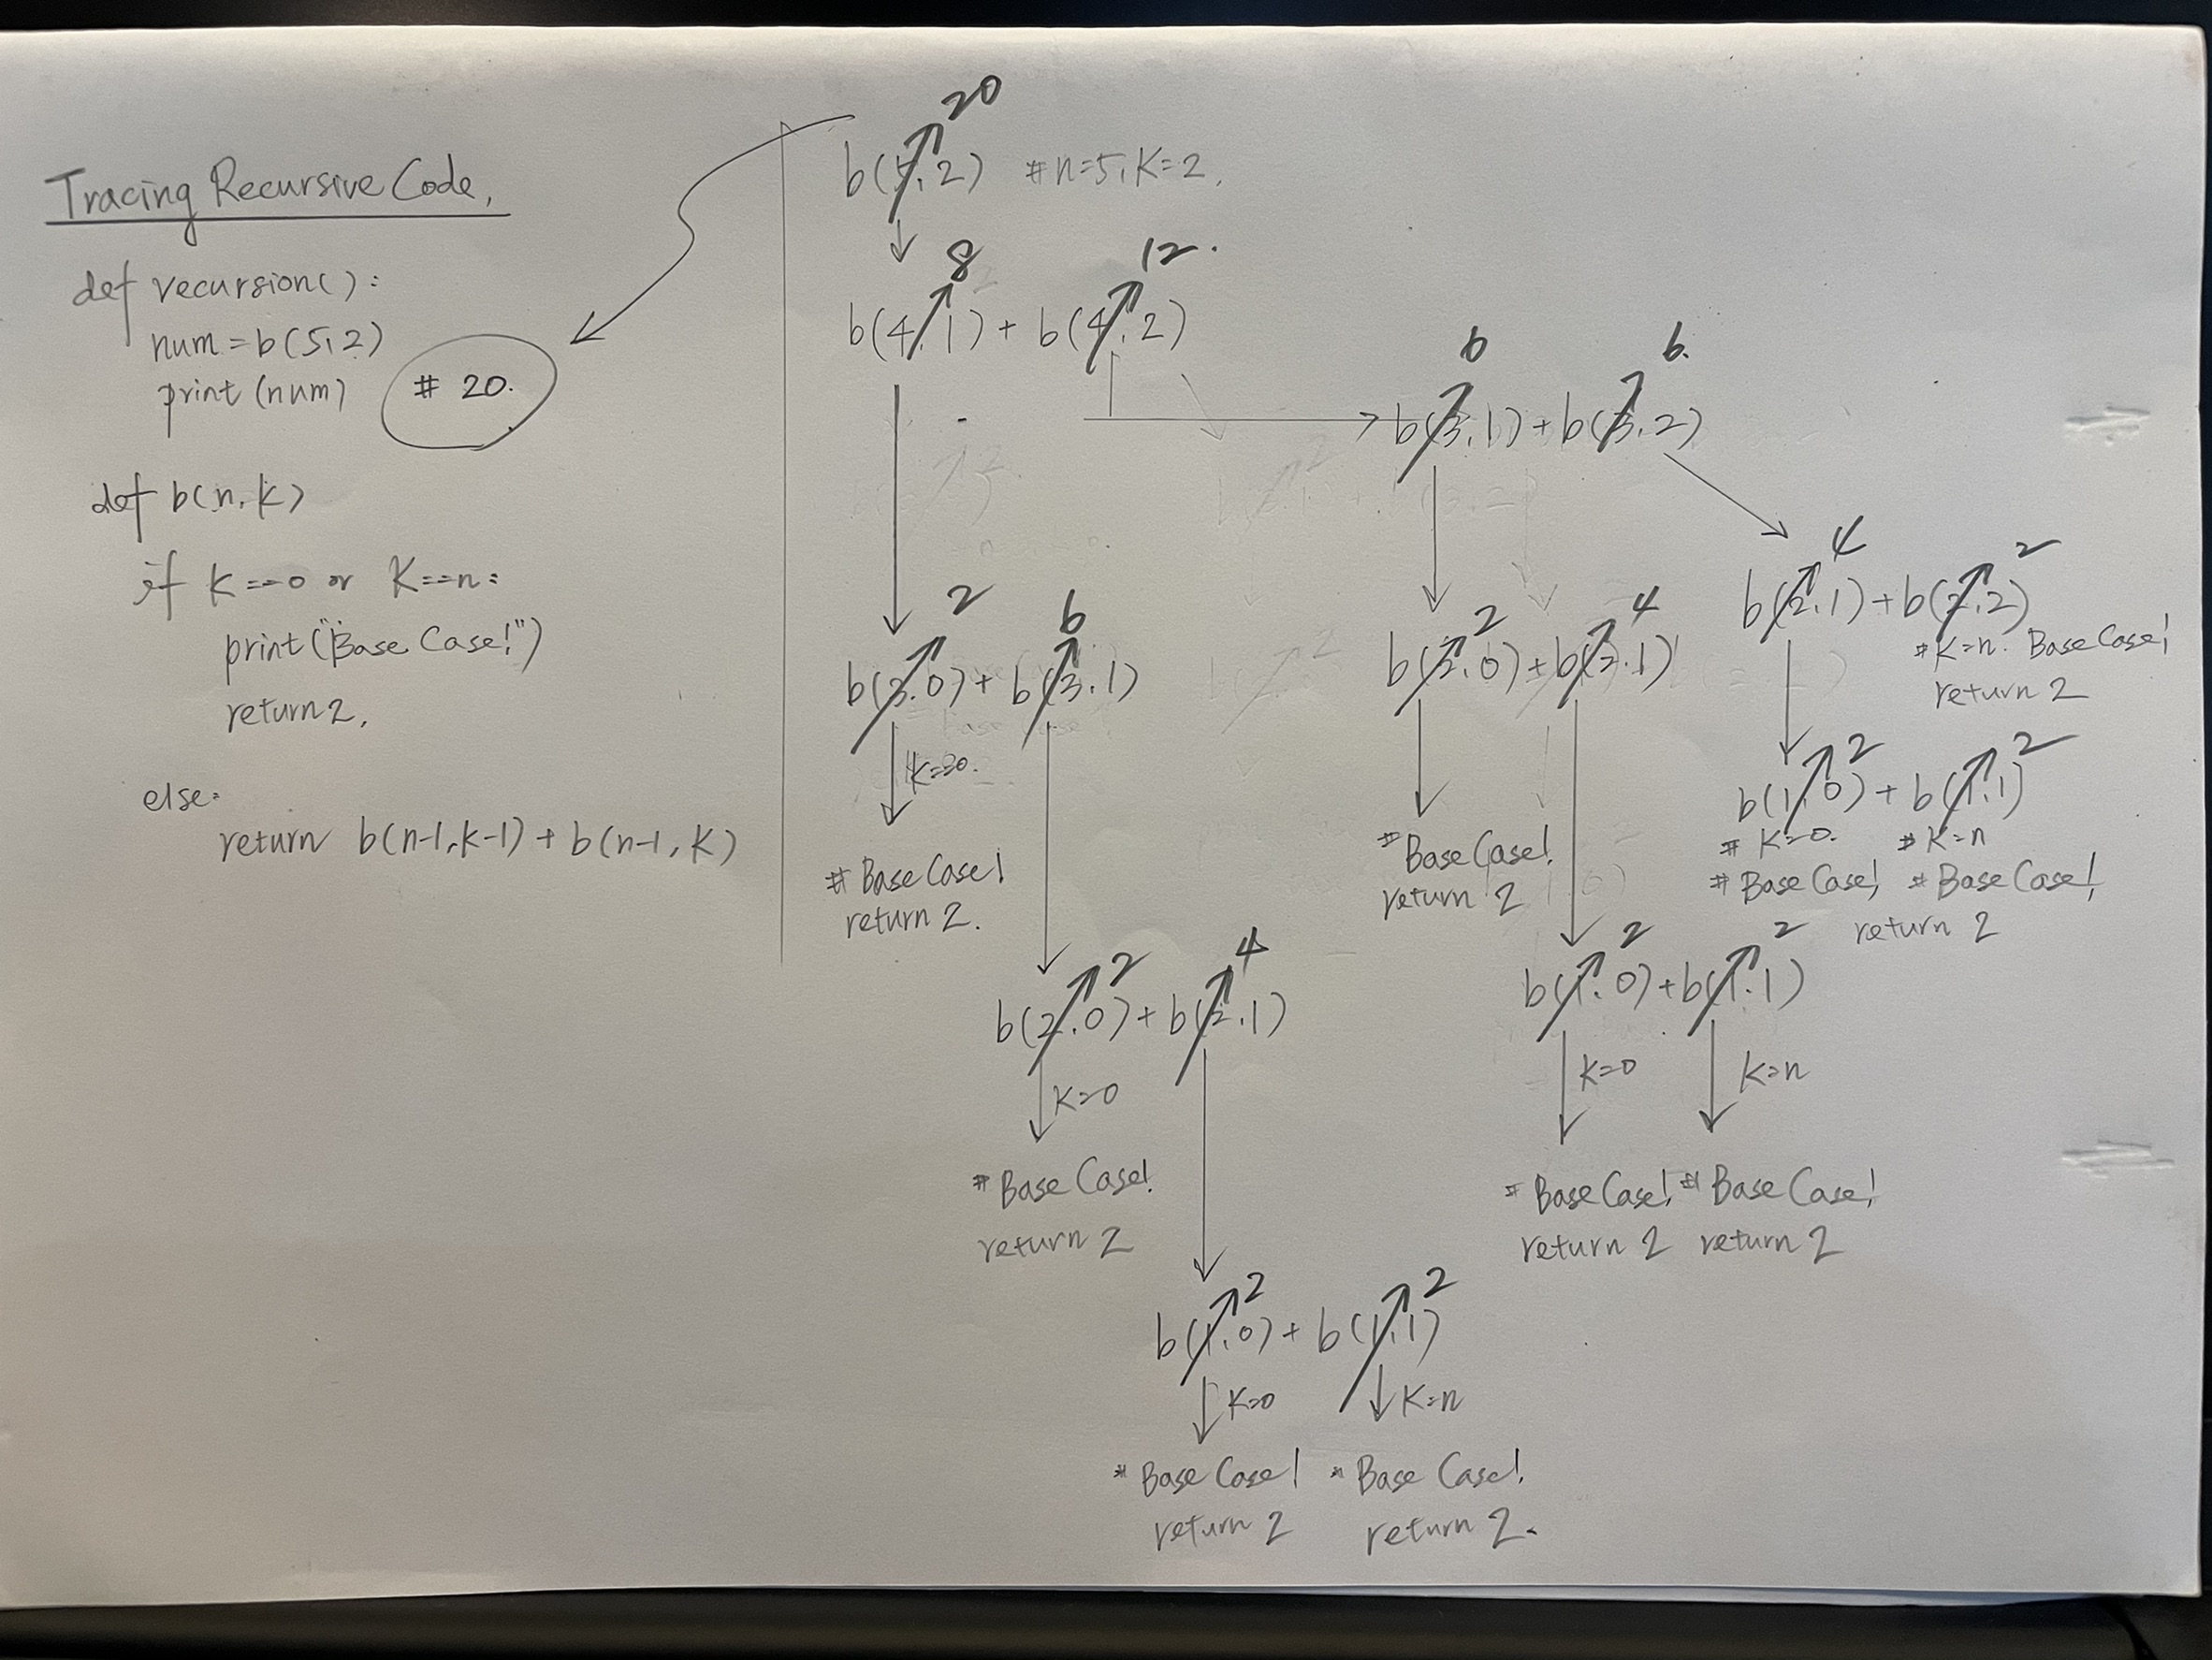 Tracing Recursive Code,
def recursion():
num = b(5,2)
print (num)
# 20.
def b(n,k)
if k==0 or k==n:
print("Base Case!")
return 2,
else:
return b(n-1,k-1) + b(n-1,k)
20
b(5,2) #n=5, k=2,
8 12.
b(4,1) + b(4,2)
6 6.
b(3,1) + b(3,2)
2 6
b(3,0) + b(3,1)
k==0.
# Base Case!
return 2.
2 4
b(2,0) + b(2,1)
k=0
# Base Case!
return 2
2 2
b(1,0) + b(1,1)
k=0 k=n
# Base Case! # Base Case!
return 2 return 2.
2 4
b(2,0) + b(2,1)
# Base Case!
return 2
2 2
b(1,0) + b(1,1)
k=0 k=n
# Base Case! # Base Case!
return 2 return 2
4 2
b(2,1) + b(2,2)
# k=n. Base Case!
return 2
2 2
b(1,0) + b(1,1)
# k=0. # k=n
# Base Case! # Base Case!
return 2